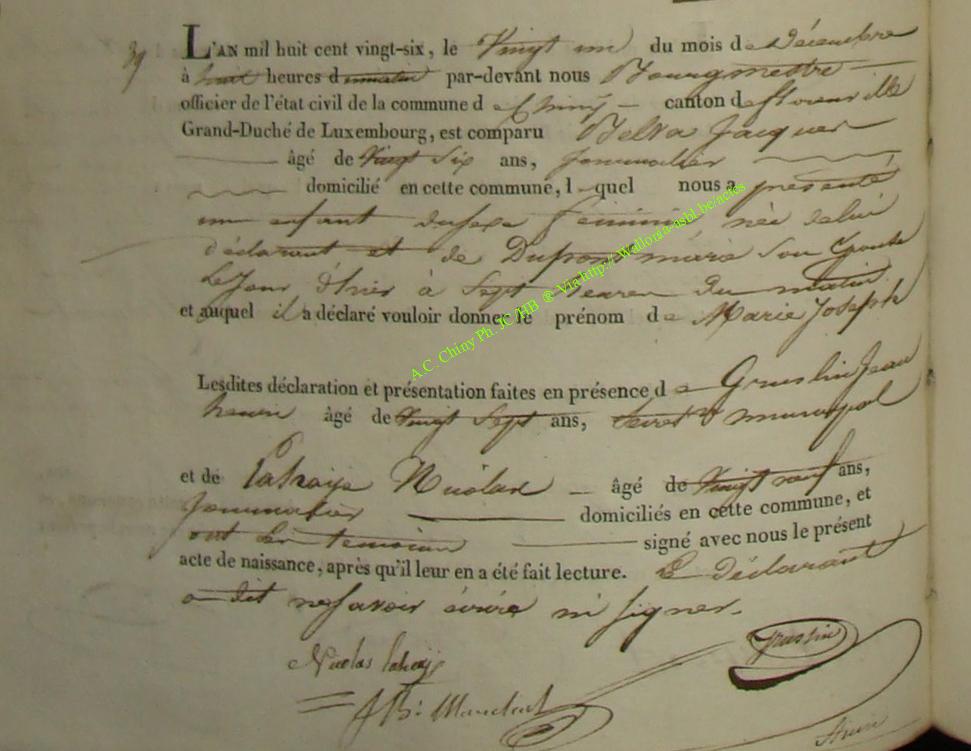 39
L'AN mil huit cent vingt-six, le Vingt un du mois de Décembre
à huit heures du matin par-devant nous Bourgmestre
officier de l'état civil de la commune de Chiny canton de florenville
Grand-Duché de Luxembourg, est comparu Belva Jacques
âgé de Vingt Six ans, Journalier
domicilié en cette commune, lequel nous a présenté
un enfant du sexe féminin, née de lui
déclarant et de Dupont marie son Epouse
Le Jour d'hier à Sept heures du matin
et auquel il a déclaré vouloir donner le prénom de Marie Joseph
Lesdites déclaration et présentation faites en présence de Gruslin Jean
henri âgé de Vingt Sept ans, Secret. municipal
et de Lahaije Nicolas âgé de Vingt neuf ans,
Journalier domiciliés en cette commune, et
ont les temoins signé avec nous le présent
acte de naissance, après qu'il leur en a été fait lecture. Le déclarant
a dit ne savoir écrire ni signer.
Gruslin
Nicolas lahaije
JBt
A.C. Chiny Ph. JC /HB @ Via http://Wallonia-asbl.be/actes